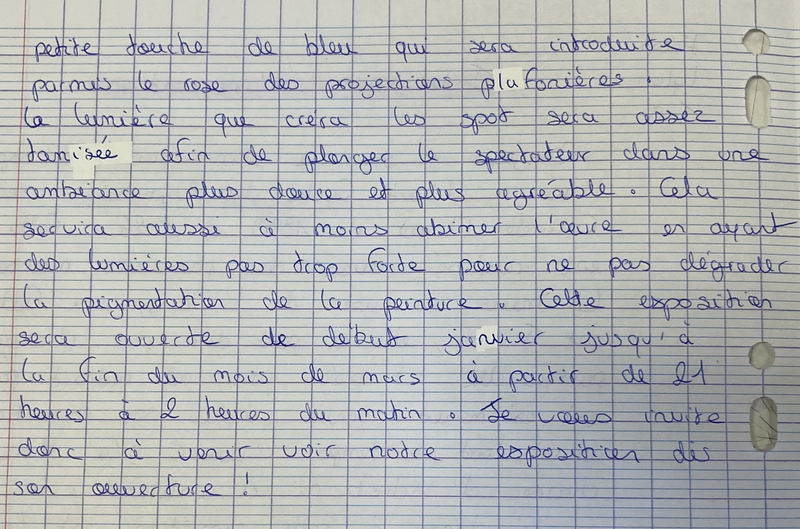 petite touche de bleu qui sera introduite
parmis le rose des projections plafonières.
La lumière que créra les spot sera assez
tamisée afin de plonger le spectateur dans une
ambiance plus douce et plus agréable. Cela
servira aussi à moins abimer l'œuvre en ayant
des lumières pas trop forte pour ne pas dégrader
la pigmentation de la peinture. Cette exposition
sera ouverte de début janvier jusqu'à
la fin du mois de mars à partir de 21
heures à 2 heures du matin. Je vous invite
donc à venir voir notre exposition dès
son ouverture !